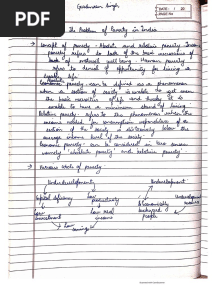 PDF
Gursharan Singh
DATE:
The Problem of Poverty in India
→ of poverty - Absolute and relative poverty Income
poverty refers to lack of the basic necessities of
lack of material well being. Human poverty
refers to denial of opportunity for living a
life.
Economic poverty can be defined as a phenomenon
when a section of society is unable to get even
the basic necessities of life and thereby it is
unable to have a minimum standard of living.
Relative poverty - refers to the phenomenon when the
income or expenditure of a
section of the society is distinctively below the
average income level of the society.
Economic poverty can be considered in two senses
namely 'absolute poverty' and relative poverty.
→ Vicious circle of poverty -
Underdevelopment
Underdevelopment
Capital deficiency
Low productivity
Economically backward people
Low investment
Low real income
Low saving